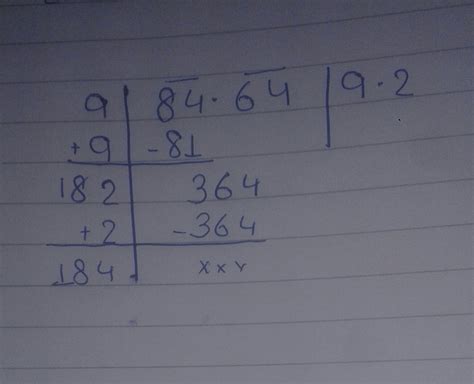 9 | 84.64 | 9.2
+9 | -81
182 | 364
+2 | -364
184 | xxx